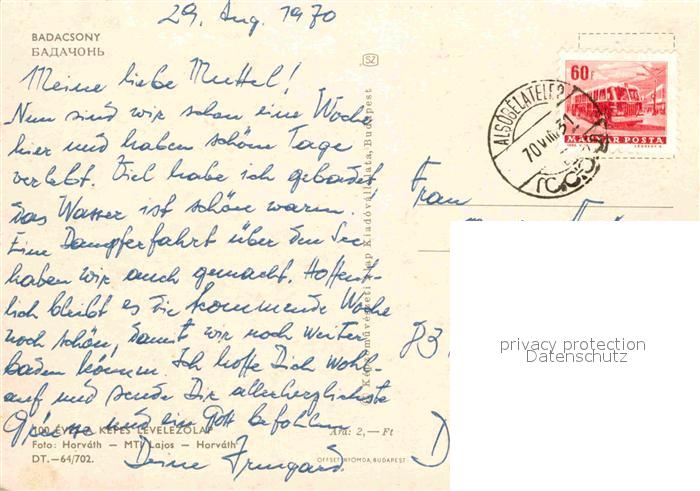 29. Aug. 1970
BADACSONY
БАДАЧОНЬ
Meine liebe Muttel!
Nun sind wir schon eine Woche
hier und haben schöne Tage
verlebt. Viel habe ich gebadet
das Wasser ist schön warm.
Eine Dampferfahrt über den See
haben wir auch gemacht. Hoffent-
lich bleibt es die kommende Woche
noch schön, damit wir noch weiter
baden können. Ich hoffe Dich wohl-
auf und sende Dir allerherzlichste
Grüsse und ein Gott befohlen
Deine Irmgard.
100 ÉVES A KÉPES LEVELEZŐLAP
Foto: Horváth — MTI Lajos — Horváth
DT.—64/702.
Ára: 2,— Ft
OFFSET NYOMDA, BUDAPEST
SZ
Képzőművészeti Alap Kiadóvállalata, Budapest
60f
MAGYAR POSTA
ALSÓBÉLATELEP
70 VIII. 31
Frau
83
D
privacy protection
Datenschutz